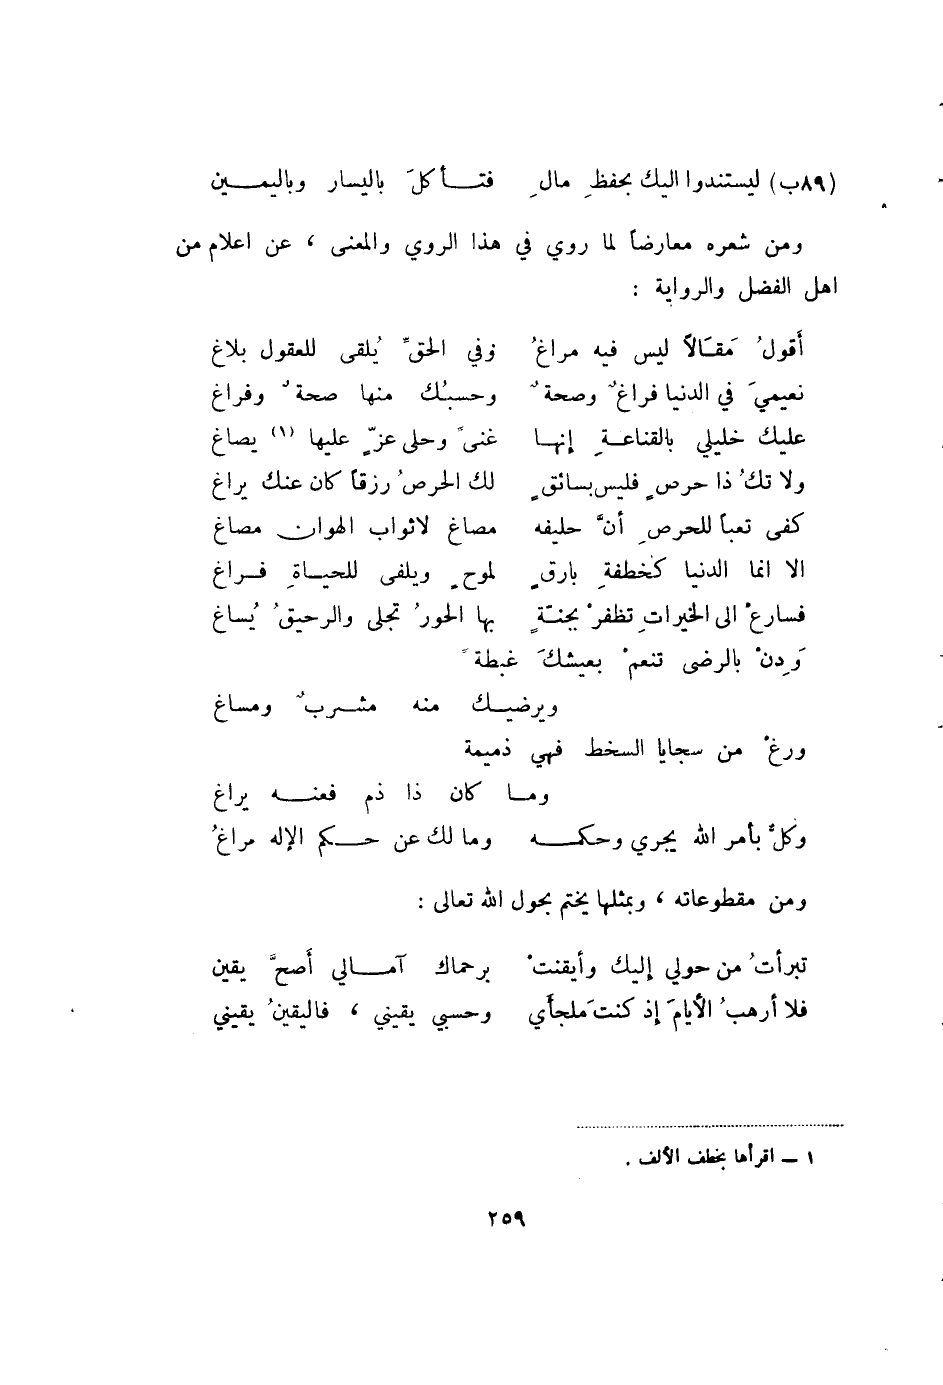 (٨٩ب) ليستندوا اليك بحفظِ مالِ فتـأكلَ باليسار وباليمـين
ومن شعره معارضاً لما روي في هذا الروي والمعنى ، عن اعلام من
اهل الفضل والرواية :
أقولُ مَقـَالاً ليس فيه مراغُ وفي الحقِّ يُلقى للعقول بلاغ
نعيميَ في الدنيا فراغٌ وصحةٌ وحسبُك منها صحةٌ وفراغ
عليك خليلي بالقناعـةِ إنهـا غنىً وحلى عزٍّ عليها (١) يصاغ
ولا تكُ ذا حرصٍ فليس بسائقٍ لك الحرصُ رزقاً كان عنك يراغ
كفى تعباً للحرصِ أنَّ حليفه مصاغ لاثواب الهوان مصاغ
الا انما الدنيا كخطفةِ بارقٍ لموحٍ ويلفى للحيـاةِ فـراغ
فسارعْ الى الخيراتِ تظفرْ بجنـّةٍ بها الحورُ تجلى والرحيقُ يُساغ
وَدِنْ بالرضى تنعمْ بعيشكَ غبطةً
ويرضيـك منه مشـربٌ ومساغ
ورغْ من سجايا السخط فهي ذميمة
ومـا كان ذا ذم فعنـه يراغ
وكلٌ بأمر الله يجري وحكمـه وما لك عن حـكم الإله مراغُ
ومن مقطوعاته ، وبمثلها يختم بحول الله تعالى :
تبرأتُ من حولي إليك وأيقنتْ برحماك آمـالي أصحَّ يقين
فلا أرهبُ الأيامَ إذ كنتَ ملجأي وحسبي يقيني ، فاليقينُ يقيني
١ – اقرأها بخطف الألف .
٢٥٩